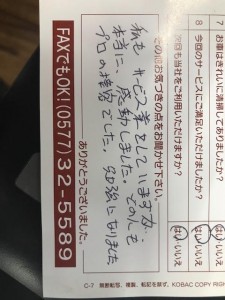 7 お車はきれいに清掃してありましたか?
はい・いいえ
8 今回のサービスにご満足いただけましたか?
はい・いいえ
次回も当社をご利用いただけますか?
はい・いいえ
その他お気づきの点をお聞かせ下さい。
私も サービス業をしていますが、
本当に、感動しました。さのさんも
プロの接客でした。勉強になりました
ありがとうございました。
FAXでもOK! (0577)32-5589
C-7 無断転写、複製、転記を禁ず。KOBAC COPY RIGH